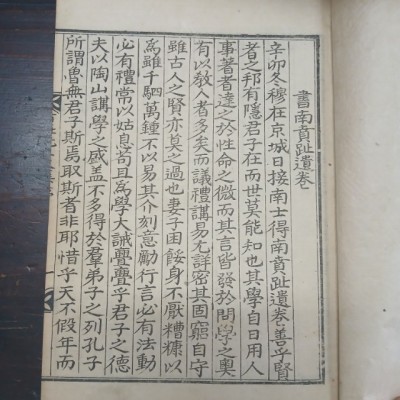 書南賁趾遺卷
辛卯冬穆在京城日接南士得南賁趾遺卷善乎賢
者之邦有隱君子在而世莫能知也其學自日用人
事著者達之於性命之微而其言皆發於問學之奧
有以教人者多矣而議禮講易尤詳密其固窮自守
雖古人之賢亦莫之過也妻子困餒身不厭糟糠以
爲雖千駟萬鍾不以易其介刻意勵行言必有法動
必有禮常以姑息苟且爲學大誡亹亹乎君子之德
夫以陶山講學之盛盖不多得於羣弟子之列孔子
所謂魯無君子斯焉取斯者非耶惜乎天不假年而